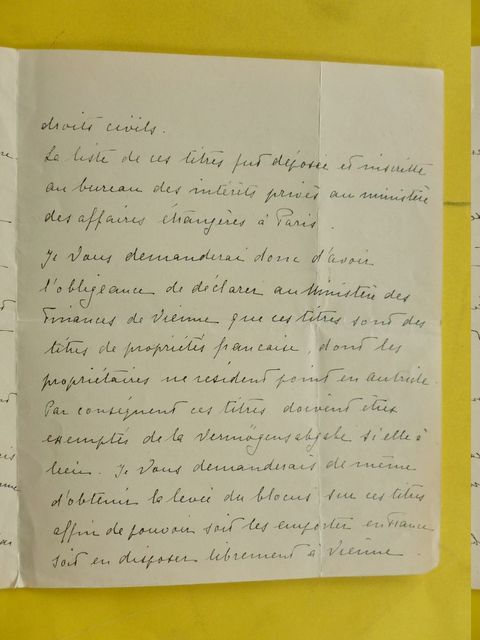 droits civils.
La liste de ces titres fut déposée et inscritte
au bureau des intérêts privés au ministère
des affaires étrangères à Paris.
Je Vous demanderai donc d'avoir
l'obligeance de déclarer au Ministère des
Finances de Vienne que ces titres sont des
titres de propriétés francaise, dont les
propriétaires ne résident point en autriche.
Par conséquent ces titres doivent êtres
exemptés de la Vermögensabgabe si elle à
lieu. Je Vous demanderais de même
d'obtenir la levée du blocus sur ces titres
affin de pouvoir soit les emporter en France
soit en disposer librement à Vienne.